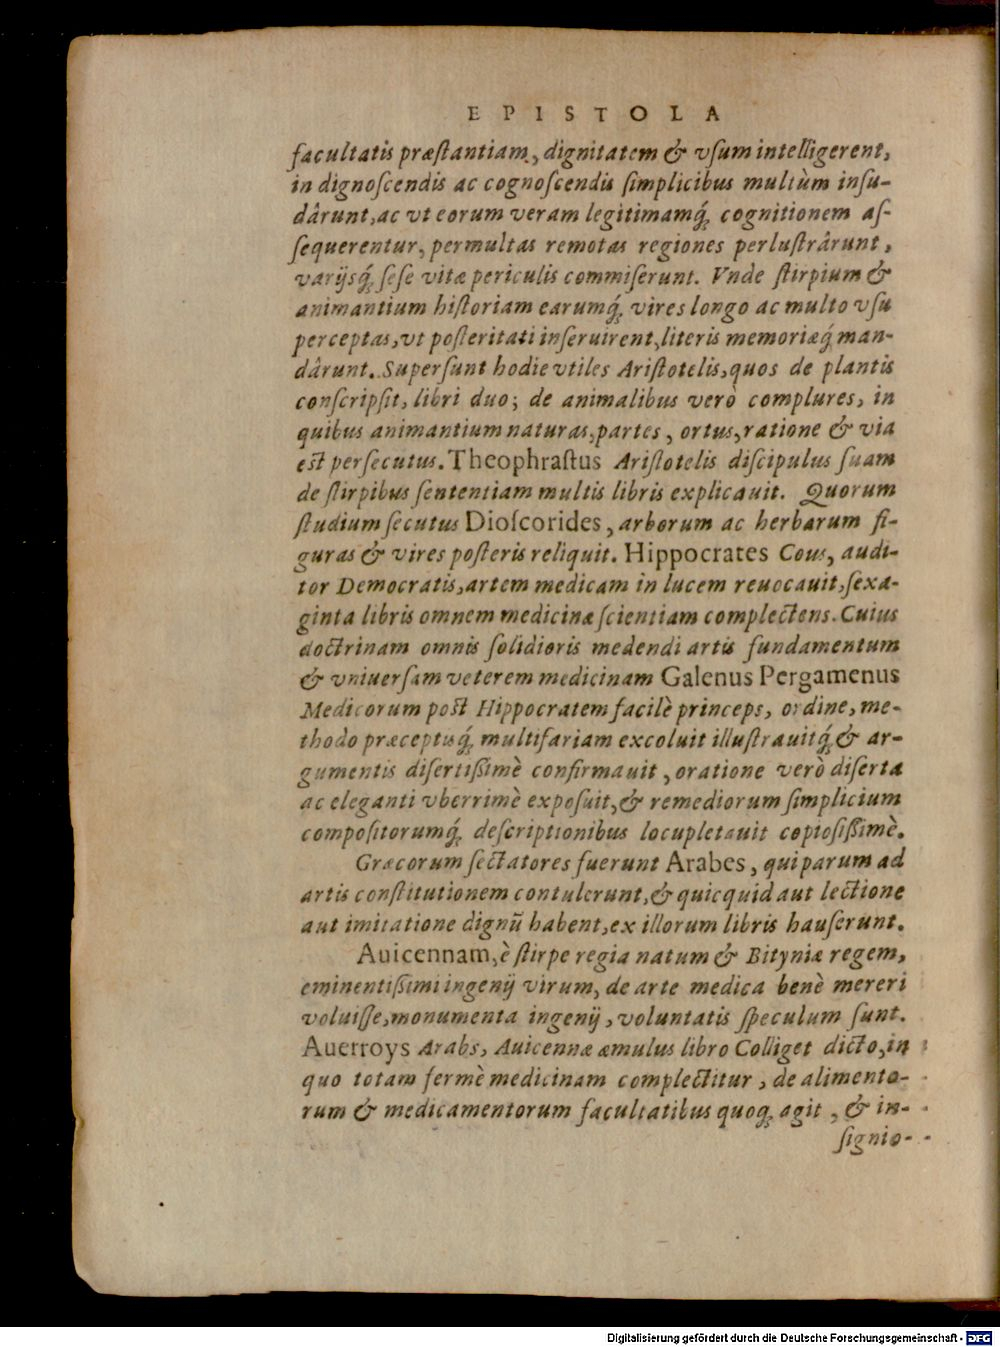 EPISTOLA
facultatis præſtantiam, dignitatem & vſum intelligerent,
in dignoſcendis ac cognoſcendis ſimplicibus multùm inſu-
dârunt, ac vt eorum veram legitimamq́; cognitionem aſ-
ſequerentur, permultas remotas regiones perluſtrârunt,
varijsq́; ſeſe vitæ periculis commiſerunt. Vnde ſtirpium &
animantium hiſtoriam earumq́; vires longo ac multo vſu
perceptas, vt poſteritati inſeruirent, literis memoriæq́; man-
dârunt. Superſunt hodie vtiles Ariſtotelis, quos de plantis
conſcripſit, libri duo; de animalibus verò complures, in
quibus animantium naturas, partes, ortus, ratione & via
eſt perſecutus. Theophraſtus Ariſtotelis diſcipulus ſuam
de ſtirpibus ſententiam multis libris explicauit. Quorum
ſtudium ſecutus Dioſcorides, arborum ac herbarum fi-
guras & vires poſteris reliquit. Hippocrates Cous, audi-
tor Democratis, artem medicam in lucem reuocauit, ſexa-
ginta libris omnem medicinæ ſcientiam complectens. Cuius
doctrinam omnis ſolidioris medendi artis fundamentum
& vniuerſam veterem medicinam Galenus Pergamenus
Medicorum poſt Hippocratem facilè princeps, ordine, me-
thodo præceptisq́; multifariam excoluit illuſtrauitq́; & ar-
gumentis diſertiſſimè confirmauit, oratione verò diſerta
ac eleganti vberrimè expoſuit, & remediorum ſimplicium
compoſitorumq́; deſcriptionibus locupletauit copioſiſſimè.
Græcorum ſectatores fuerunt Arabes, qui parum ad
artis conſtitutionem contulerunt, & quicquid aut lectione
aut imitatione dignũ habent, ex illorum libris hauſerunt.
Auicennam, è ſtirpe regia natum & Bityniæ regem,
eminentiſſimi ingenij virum, de arte medica benè mereri
voluiſſe, monumenta ingenij, voluntatis ſpeculum ſunt.
Auerroys Arabs, Auicennæ æmulus libro Colliget dicto, in
quo totam fermè medicinam complectitur, de alimento-
rum & medicamentorum facultatibus quoq; agit, & in-
ſignio-
Digitalisierung gefördert durch die Deutsche Forschungsgemeinschaft - DFG